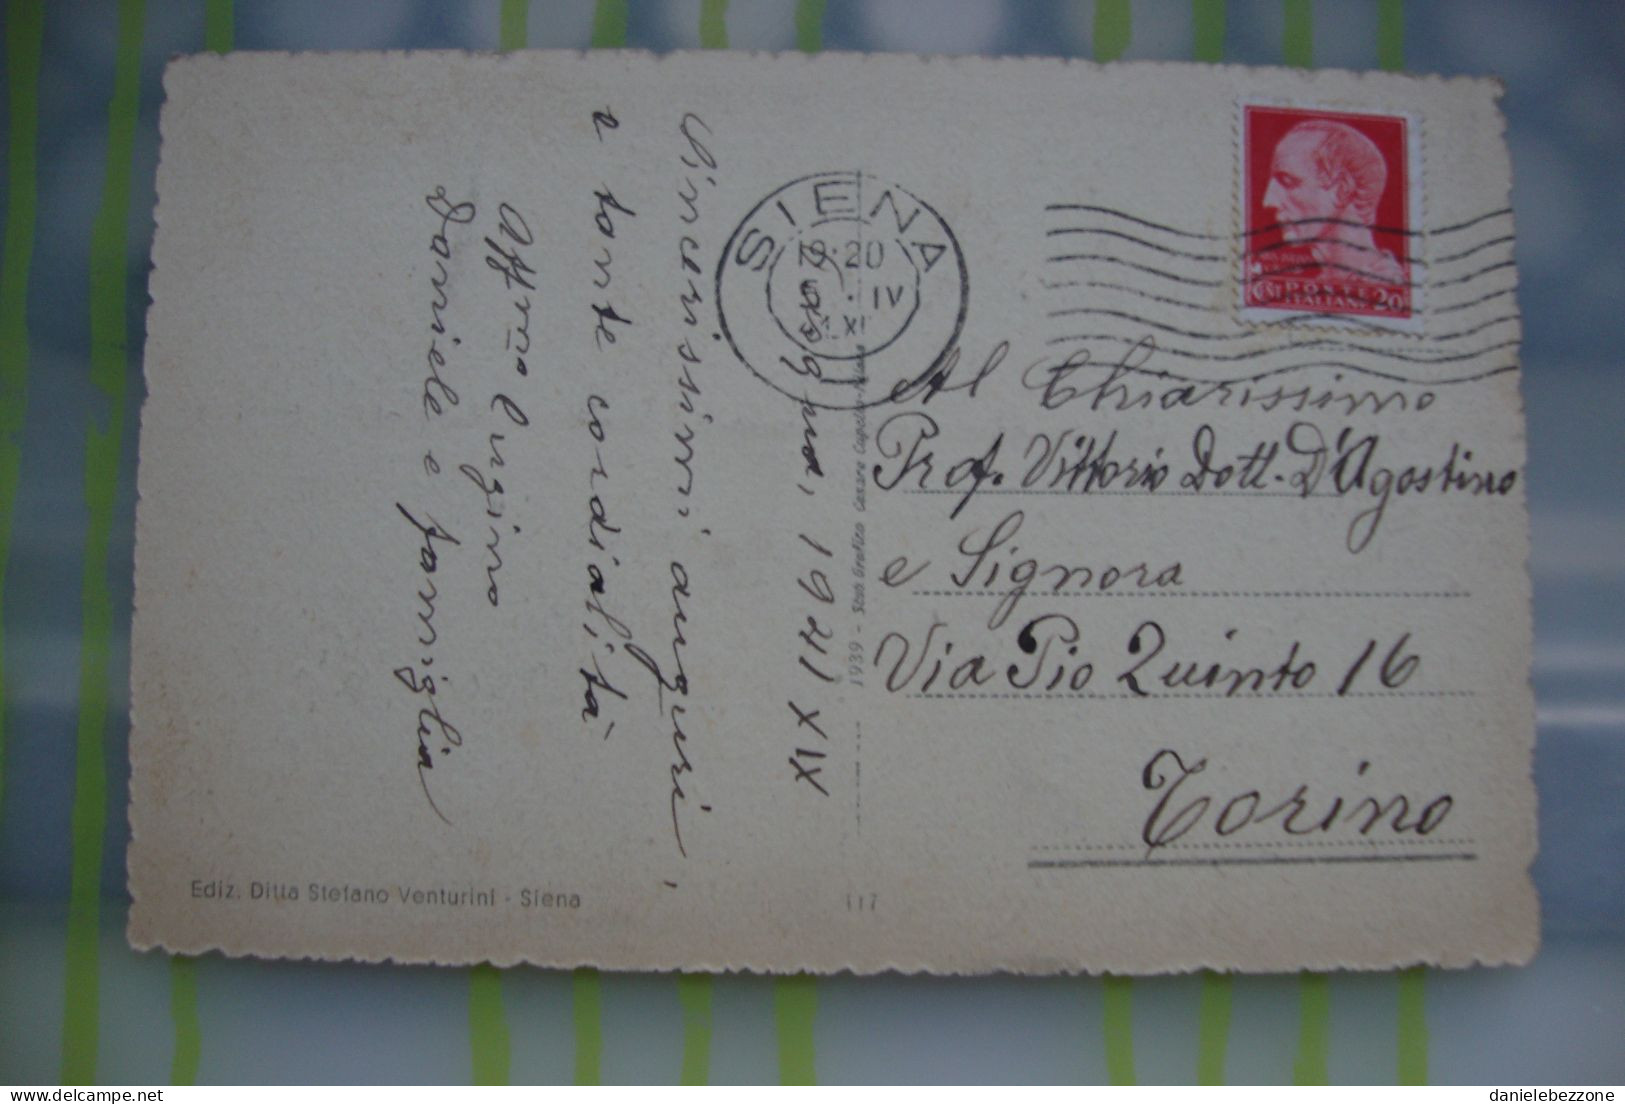 Pasqua, 1941 XIX
Sincerissimi auguri,
e tante cordialità
Aff.mo cugino
Daniele e famiglia
SIENA
19·20
IV
XI
POSTE ITALIANE
CENT 20
Al Chiarissimo
Prof. Vittorio Dott. D'Agostino
e Signora
Via Pio Quinto 16
Torino
1939 - Stab Grafico Cesare Capello - Milano
Ediz. Ditta Stefano Venturini - Siena
117
delcampe.net
danielebezzone